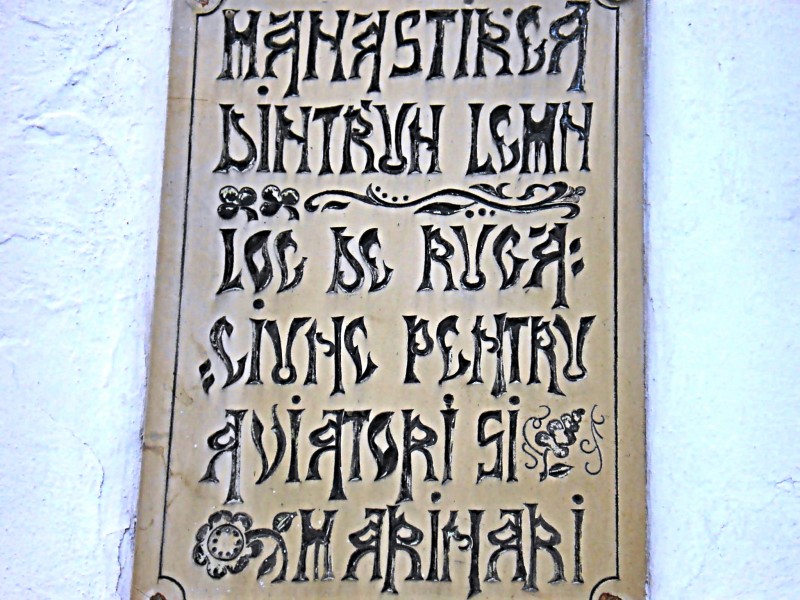 MĂNĂSTIREA
DINTR'UN LEMN
LOC DE RUGĂ:
:CIUNE PENTRU
AVIATORI SI
MARINARI